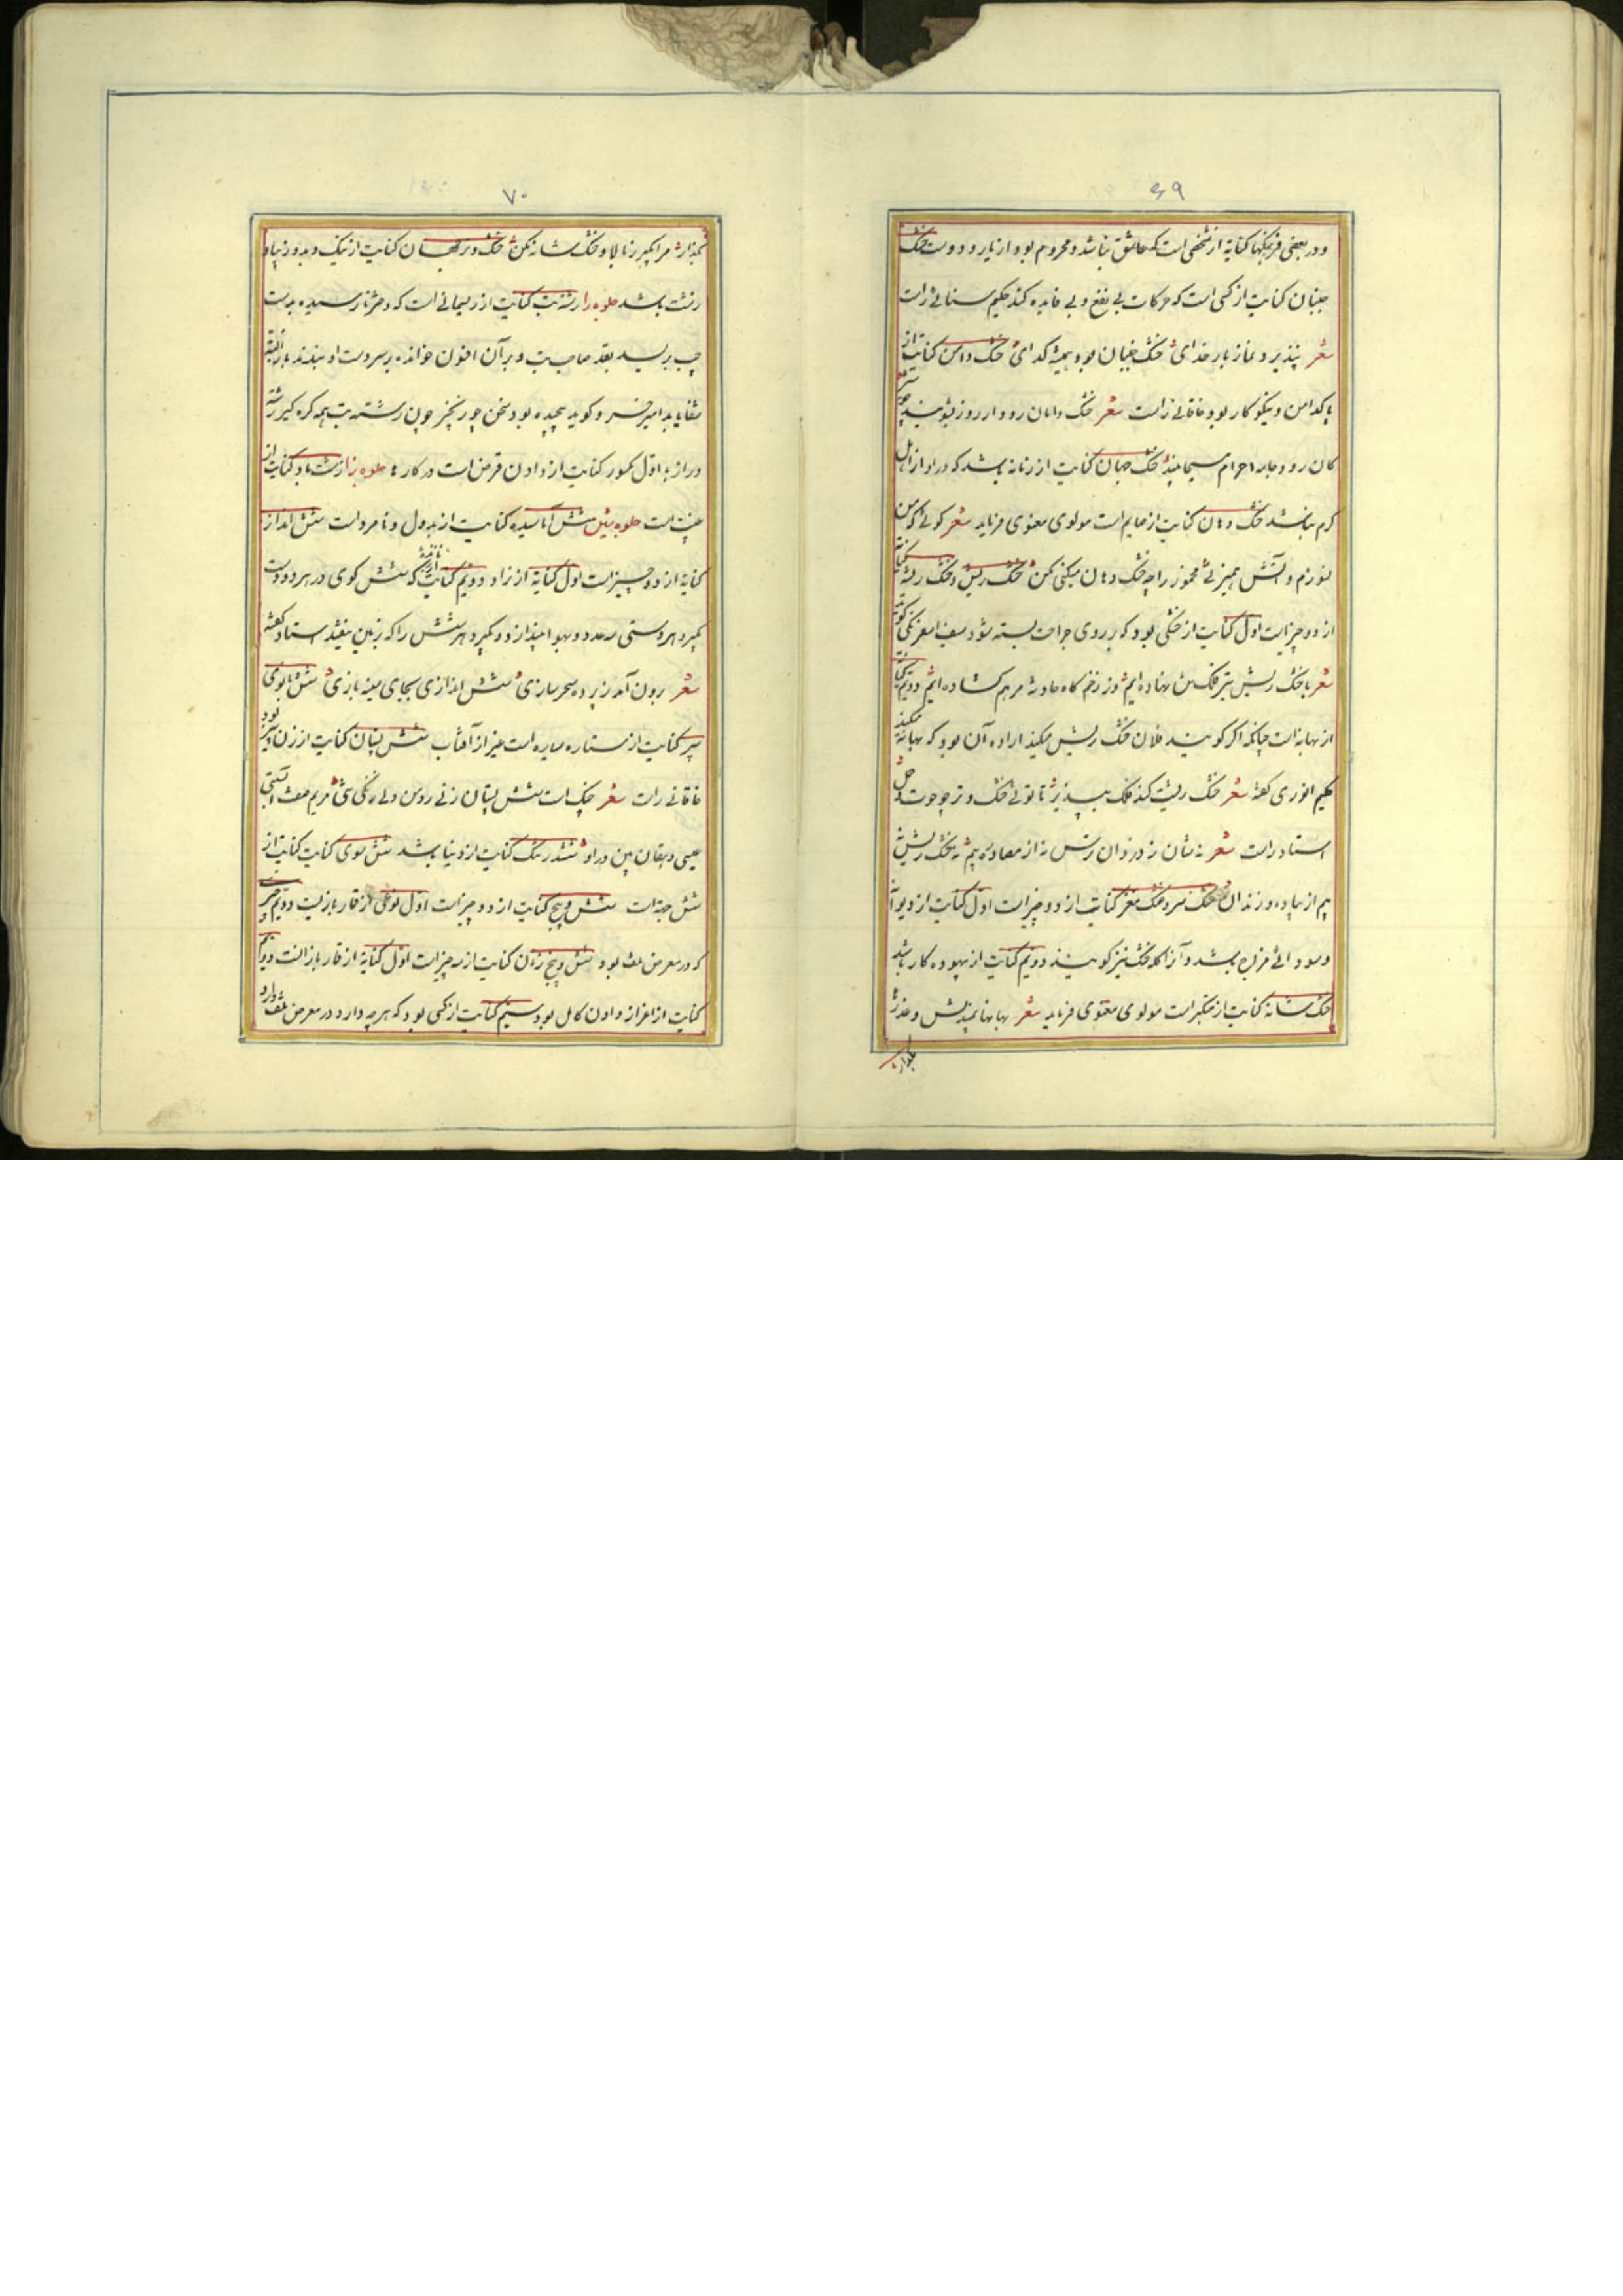 ۶۹
ودر بعضی فرهنگها کنایه از شخصی است که عاشق نباشد و محروم بود از یار و دوست خشک
جنبان کنایت از کسی است که حرکات بی نفع و بی فایده کند حکیم سنائی راست
شعر نپذیرد نماز بار خدای خشک جنبان بود همیشه گدای خشک دامن کنایت از
پاکدامن و نیکو کار بود خاقانی راست شعر خشک دامان رود ار روز
کان رود جامه احرام مسیحا بینند خشک جهان کنایت از زمانه باشد که در او از اهل
کرم نباشد خشک دهان کنایت از صایم است مولوی معنوی فرماید شعر
و آتش همیزنی مخموز را چه خشک دهان میکنی مکن خشک ریش و خشک ریشه کنایة
از دو چیز است اول کنایت از خشکی بود که بر روی جراحت بسته شود سیف اسفرنگی گوید
شعر با خشک ریش نهاده ایم وز زخم گاه حادثه مرهم گشاده ایم دویم کنایة
از بهانه است چنانکه اگر گویند فلان خشک ریش میکند اراده آن بود که بهانه میکند
حکیم انوری گفته شعر خشک ریشت کند فلک بپذیر تا تونی خشک و تر چو جوت
استاد راست شعر نه شان ز دزدان ترس نه از مصادره بیم نه خشک ریش نه
بیم از پیاده و زندان خشک سر و خشک مغز کنایت از دو چیز است اول کنایت از دیوانه
وسودائی مزاج باشد و آنرا کله خشک نیز گویند دویم کنایت از بیهوده کار باشد
خشک شانه کنایت از متکبر است مولوی معنوی فرماید شعر
بگذار
۷۰
بگذار مرا مگیر زنا لا و خشک شانه مکن خشک و تر جهان کنایت از نیک و بد و زیبا و
زشت باشد جلوه را رشته تب کنایت از ریسمانی است که دختر نارسیده بدست
چپ بریسد بقصد صاحب تب و بر آن افسون خوانده بر سر دست او بندند باذن الله
شفا یابد امیر خسرو گوید پیچیده بود سخن چو زنجیر چون رشته تب همه گره گیر رشته
دراز به اول مکسور کنایت از دادن فرصت است در کارها جلوه زا زشت یاد کنایت از
غیبت است جلوه شین شش آماسیده کنایت از بد دل و نامرد است شش انداز
کنایة از دو چیز است اول کنایة از نراد دویم کنایت که شش گوی در هر دو دست
گیرد هر دستی سه عدد و بهوا میندازد و گیرد هر شش را که بزمین نیفتد استاد گفته
شعر برون آمد ز پرده سحر سازی شش اندازی بجای بازی شش بانوی
پیر کنایت از ستاره سیاره است غیر از آفتاب شش پستان کنایت از زن پیر بود
خاقانی راست شعر چنگ است شش پستان زنی رومی دلی زنگی مریم صفت آبستنی
عیسی دهقان بین در او ششدر تنگ کنایت از دنیا باشد شش سوی کنایت کنایت از
شش جهة است شش و پنج کنایت از دو چیز است اول نوعی از قمار بازیست دویم
که در معرض تلف بود شش و پنج زدن کنایت از سه چیز است اول کنایة از قمار باز است دویم
کنایت از اعزاز دادن کامل بود سیم کنایت از کسی بود که هرچه دارد در معرض تلف دارد